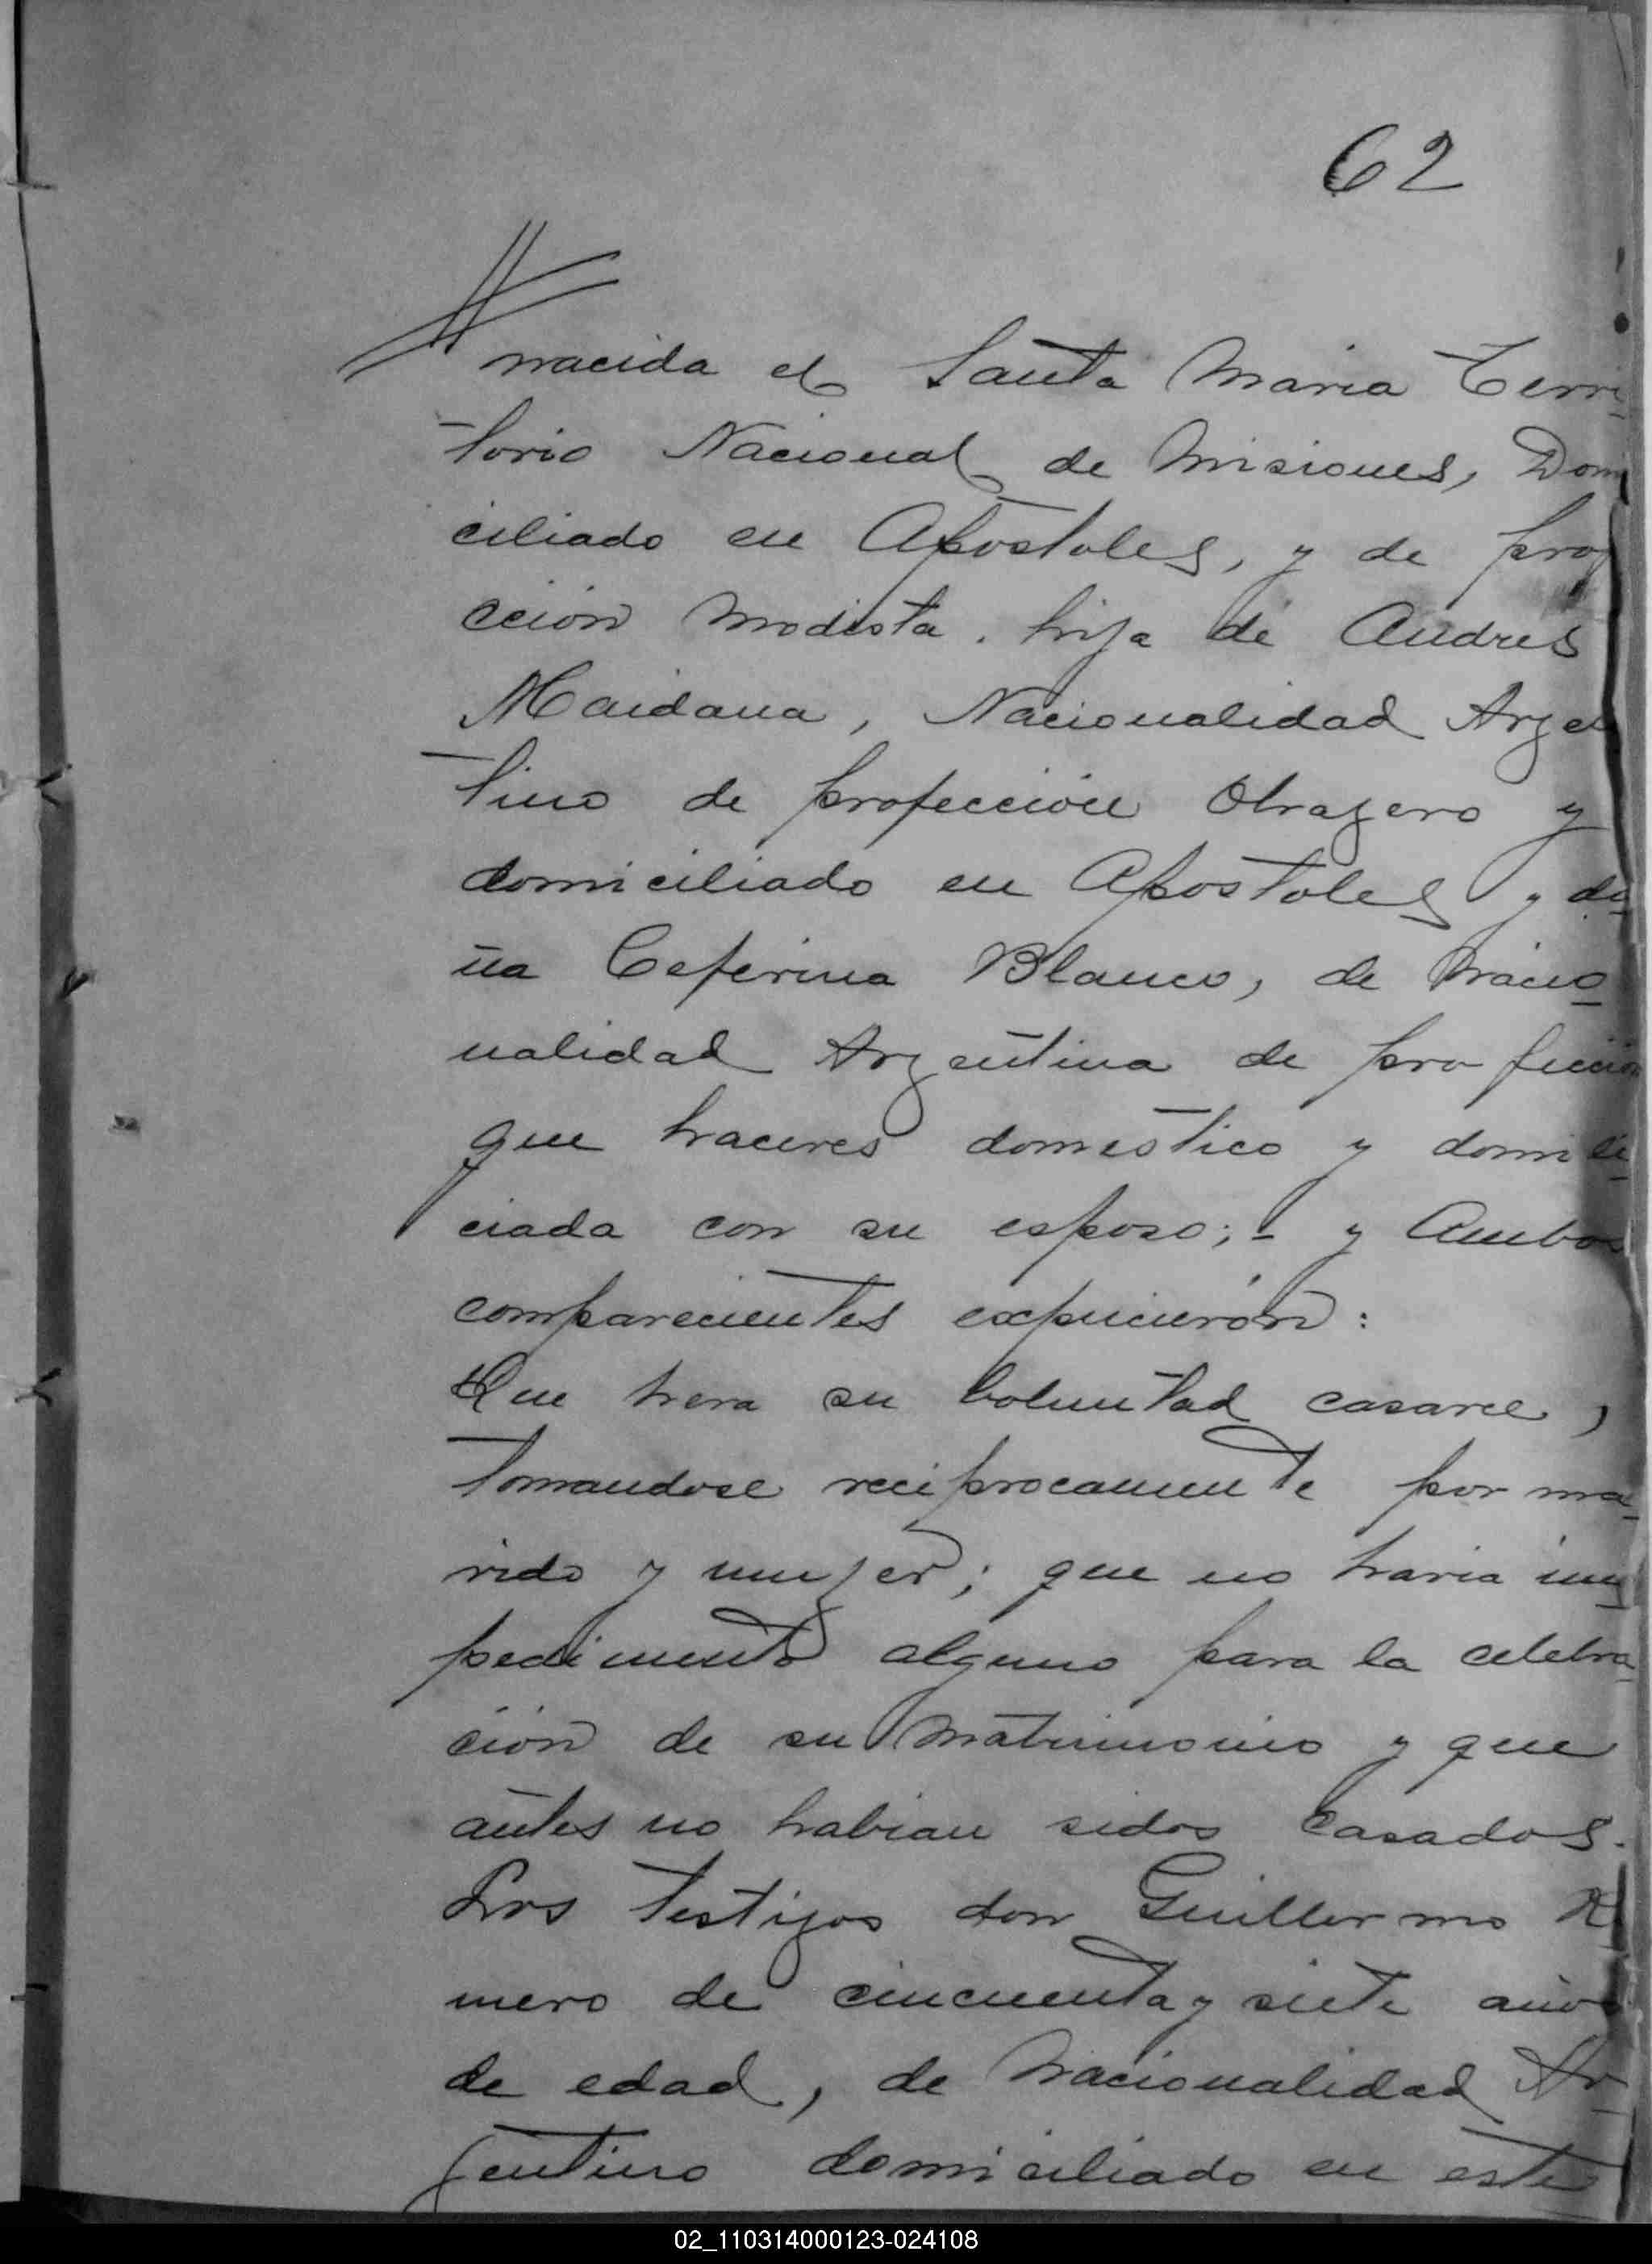 62
nacida el Santa Maria Terri_
torio Nacional de Misiones, Domi
ciliado en Apostoles, y de prof
ección modista. hija de Andres
Maidana, Nacionalidad Argen
tino de profección Obragero y
domiciliado en Apostoles y do_
ña Ceferina Blanco, de nacio_
nalidad Argentina de profección
que haceres domestico y domili_
ciada con su esposo;- y Ambos
comparecientes expucieron:
Que hera su boluntad casarce,
tomandose reciprocamente por ma_
rido y mujer; que no havia im_
pedimento alguno para la celebra_
ción de su matrimonio y que
antes no habian sidos casados.
Los testigos don Guillermo
mero de cincuenta y siete años
de edad, de nacionalidad Ar_
gentino domiciliado en este
02_110314000123-024108